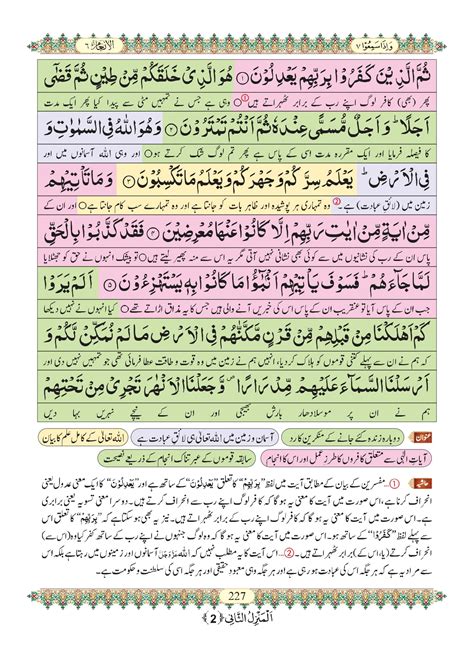 وَاِذَاسَمِعُوْا ٧
الْاَنْعَام ٦
ثُمَّ الَّذِيْنَ كَفَرُوْا بِرَبِّهِمْ يَعْدِلُوْنَ ① هُوَ الَّذِيْ خَلَقَكُمْ مِّنْ طِيْنٍ ثُمَّ قَضٰۤى
پھر (بھی) کافر لوگ اپنے رب کے برابر ٹھہراتے ہیں ① وہی ہے جس نے تمہیں مٹی سے پیدا کیا پھر ایک مدت
اَجَلًا ؕ وَاَجَلٌ مُّسَمًّى عِنْدَهٗ ثُمَّ اَنْتُمْ تَمْتَرُوْنَ ② وَهُوَ اللّٰهُ فِي السَّمٰوٰتِ وَ
کا فیصلہ فرمایا اور ایک مقررہ مدت اسی کے پاس ہے پھر تم لوگ شک کرتے ہو اور وہی اللہ آسمانوں میں اور
فِي الْاَرْضِ ؕ يَعْلَمُ سِرَّكُمْ وَجَهْرَكُمْ وَيَعْلَمُ مَا تَكْسِبُوْنَ ③ وَمَا تَاْتِيْهِمْ
زمین میں (لائقِ عبادت) ہے ② وہ تمہاری ہر پوشیدہ اور ظاہر بات کو جانتا ہے اور وہ تمہارے سب کام جانتا ہے اور ان کے
مِّنْ اٰيَةٍ مِّنْ اٰيٰتِ رَبِّهِمْ اِلَّا كَانُوْا عَنْهَا مُعْرِضِيْنَ ④ فَقَدْ كَذَّبُوْا بِالْحَقِّ
پاس ان کے رب کی نشانیوں میں سے جو بھی نشانی آتی ہے یہ اس سے منہ پھیر لیتے ہیں تو بیشک انہوں نے حق کو جھٹلایا
لَمَّا جَآءَهُمْ ؕ فَسَوْفَ يَاْتِيْهِمْ اَنْۢبٰٓؤُا مَا كَانُوْا بِهٖ يَسْتَهْزِءُوْنَ ⑤ اَلَمْ يَرَوْا
جب ان کے پاس آیا تو عنقریب ان کے پاس اس کی خبریں آنے والی ہیں جس کا یہ مذاق اڑاتے تھے کیا انہوں نے نہیں دیکھا
كَمْ اَهْلَكْنَا مِنْ قَبْلِهِمْ مِّنْ قَرْنٍ مَّكَّنّٰهُمْ فِي الْاَرْضِ مَا لَمْ نُمَكِّنْ لَّكُمْ وَ
کہ ہم نے ان سے پہلے کتنی قوموں کو ہلاک کر دیا، انہیں ہم نے زمین میں وہ قوت و طاقت عطا فرمائی تھی جو تمہیں نہیں دی اور
اَرْسَلْنَا السَّمَآءَ عَلَيْهِمْ مِّدْرَارًا ۪ وَّجَعَلْنَا الْاَنْهٰرَ تَجْرِيْ مِنْ تَحْتِهِمْ
ہم نے ان پر موسلا دھار بارش بھیجی اور ان کے نیچے نہریں بہا دیں
عنوان دوبارہ زندہ کئے جانے کے منکرین کا رد آسمان و زمین میں اللہ تعالیٰ ہی لائقِ عبادت ہے اللہ تعالیٰ کے کامل علم کا بیان
آیاتِ الٰہی سے متعلق کافروں کا طرزِ عمل اور اس کا انجام سابقہ قوموں کے عبرتناک انجام کے ذریعے نصیحت
حاشیہ ①... مفسرین کے بیان کے مطابق آیت میں لفظ ”بِرَبِّهِمْ“ کا تعلق ”يَعْدِلُوْنَ“ کے ساتھ ہے اور ”يَعْدِلُوْنَ“ کا ایک معنی عدول یعنی
انحراف کرنا ہے، اس صورت میں آیت کا معنی یہ ہو گا کہ کافر لوگ اپنے رب سے انحراف کرتے ہیں۔ دوسرا معنی تسویہ یعنی برابری
ہے، اس صورت میں آیت کا معنی یہ ہو گا کہ کافر لوگ اپنے رب کے برابر ٹھہراتے ہیں۔ اور یہ بھی ہو سکتا ہے کہ ”بِرَبِّهِمْ“ کا تعلق
لفظ ”كَفَرُوْا“ کے ساتھ ہو۔ اس صورت میں آیت کا معنی یہ ہو گا کہ جن لوگوں نے اپنے رب کے ساتھ کفر کیا وہ (اس سے)
انحراف کرتے (یا، اس کے) برابر ٹھہراتے ہیں۔ ②... اس آیت کا یہ مطلب نہیں کہ اللہ عَزَّوَجَلَّ آسمانوں اور زمینوں میں رہتا ہے بلکہ اس
سے مراد یہ ہے کہ ہر جگہ اسی کی عبادت ہو رہی ہے اور ہر جگہ وہی معبودِ حقیقی اور ہر جگہ اسی کی سلطنت و حکومت ہے۔
227
اَلْمَنْزِلُ الثَّانِیْ ﴿2﴾